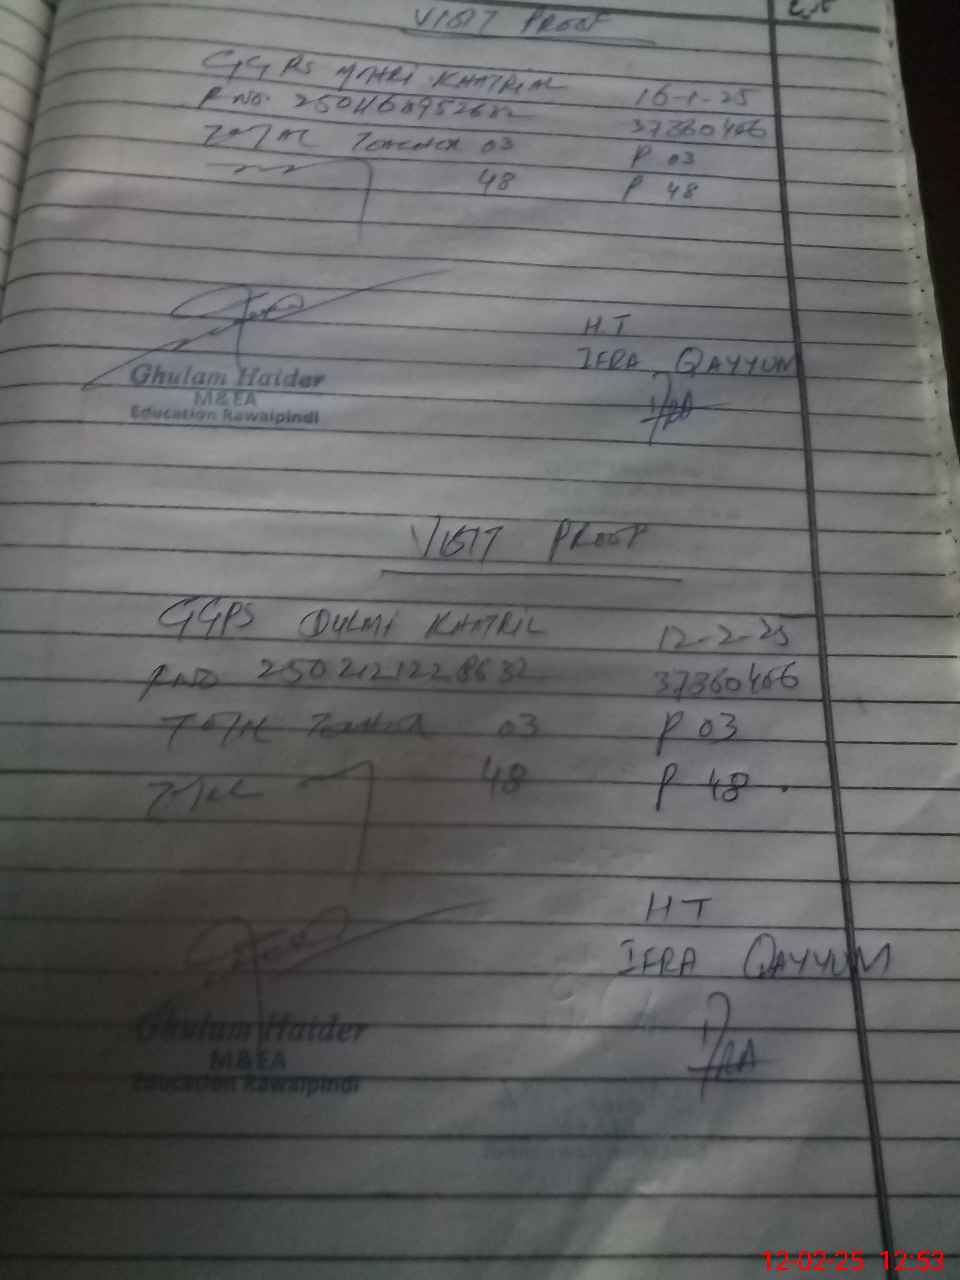 VISIT PROOF
GGPS KHATRIAL 16-1-25
R NO. 37360466
TOTAL Teacher 03 P 03
48 P 48
H T
IFRA QAYYUM
Ghulam Haider
M&EA
Education Rawalpindi
VISIT PROOF
GGPS DULMI KHATRIL 12-2-25
R NO 2502121228632 37360466
TOTAL Teacher 03 P 03
TOTAL 48 P 48
H T
IFRA QAYYUM
Ghulam Haider
M&EA
Education Rawalpindi
12-02-25 12:53